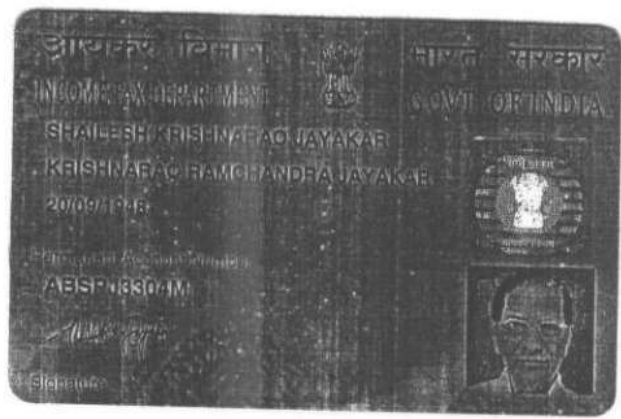 आयकर विभाग
भारत सरकार
INCOME TAX DEPARTMENT
GOVT. OF INDIA
SHAILESH KRISHNARAO JAYAKAR
KRISHNARAO RAMCHANDRA JAYAKAR
20/09/1948
Permanent Account Number
ABSPJ3304M
Signature